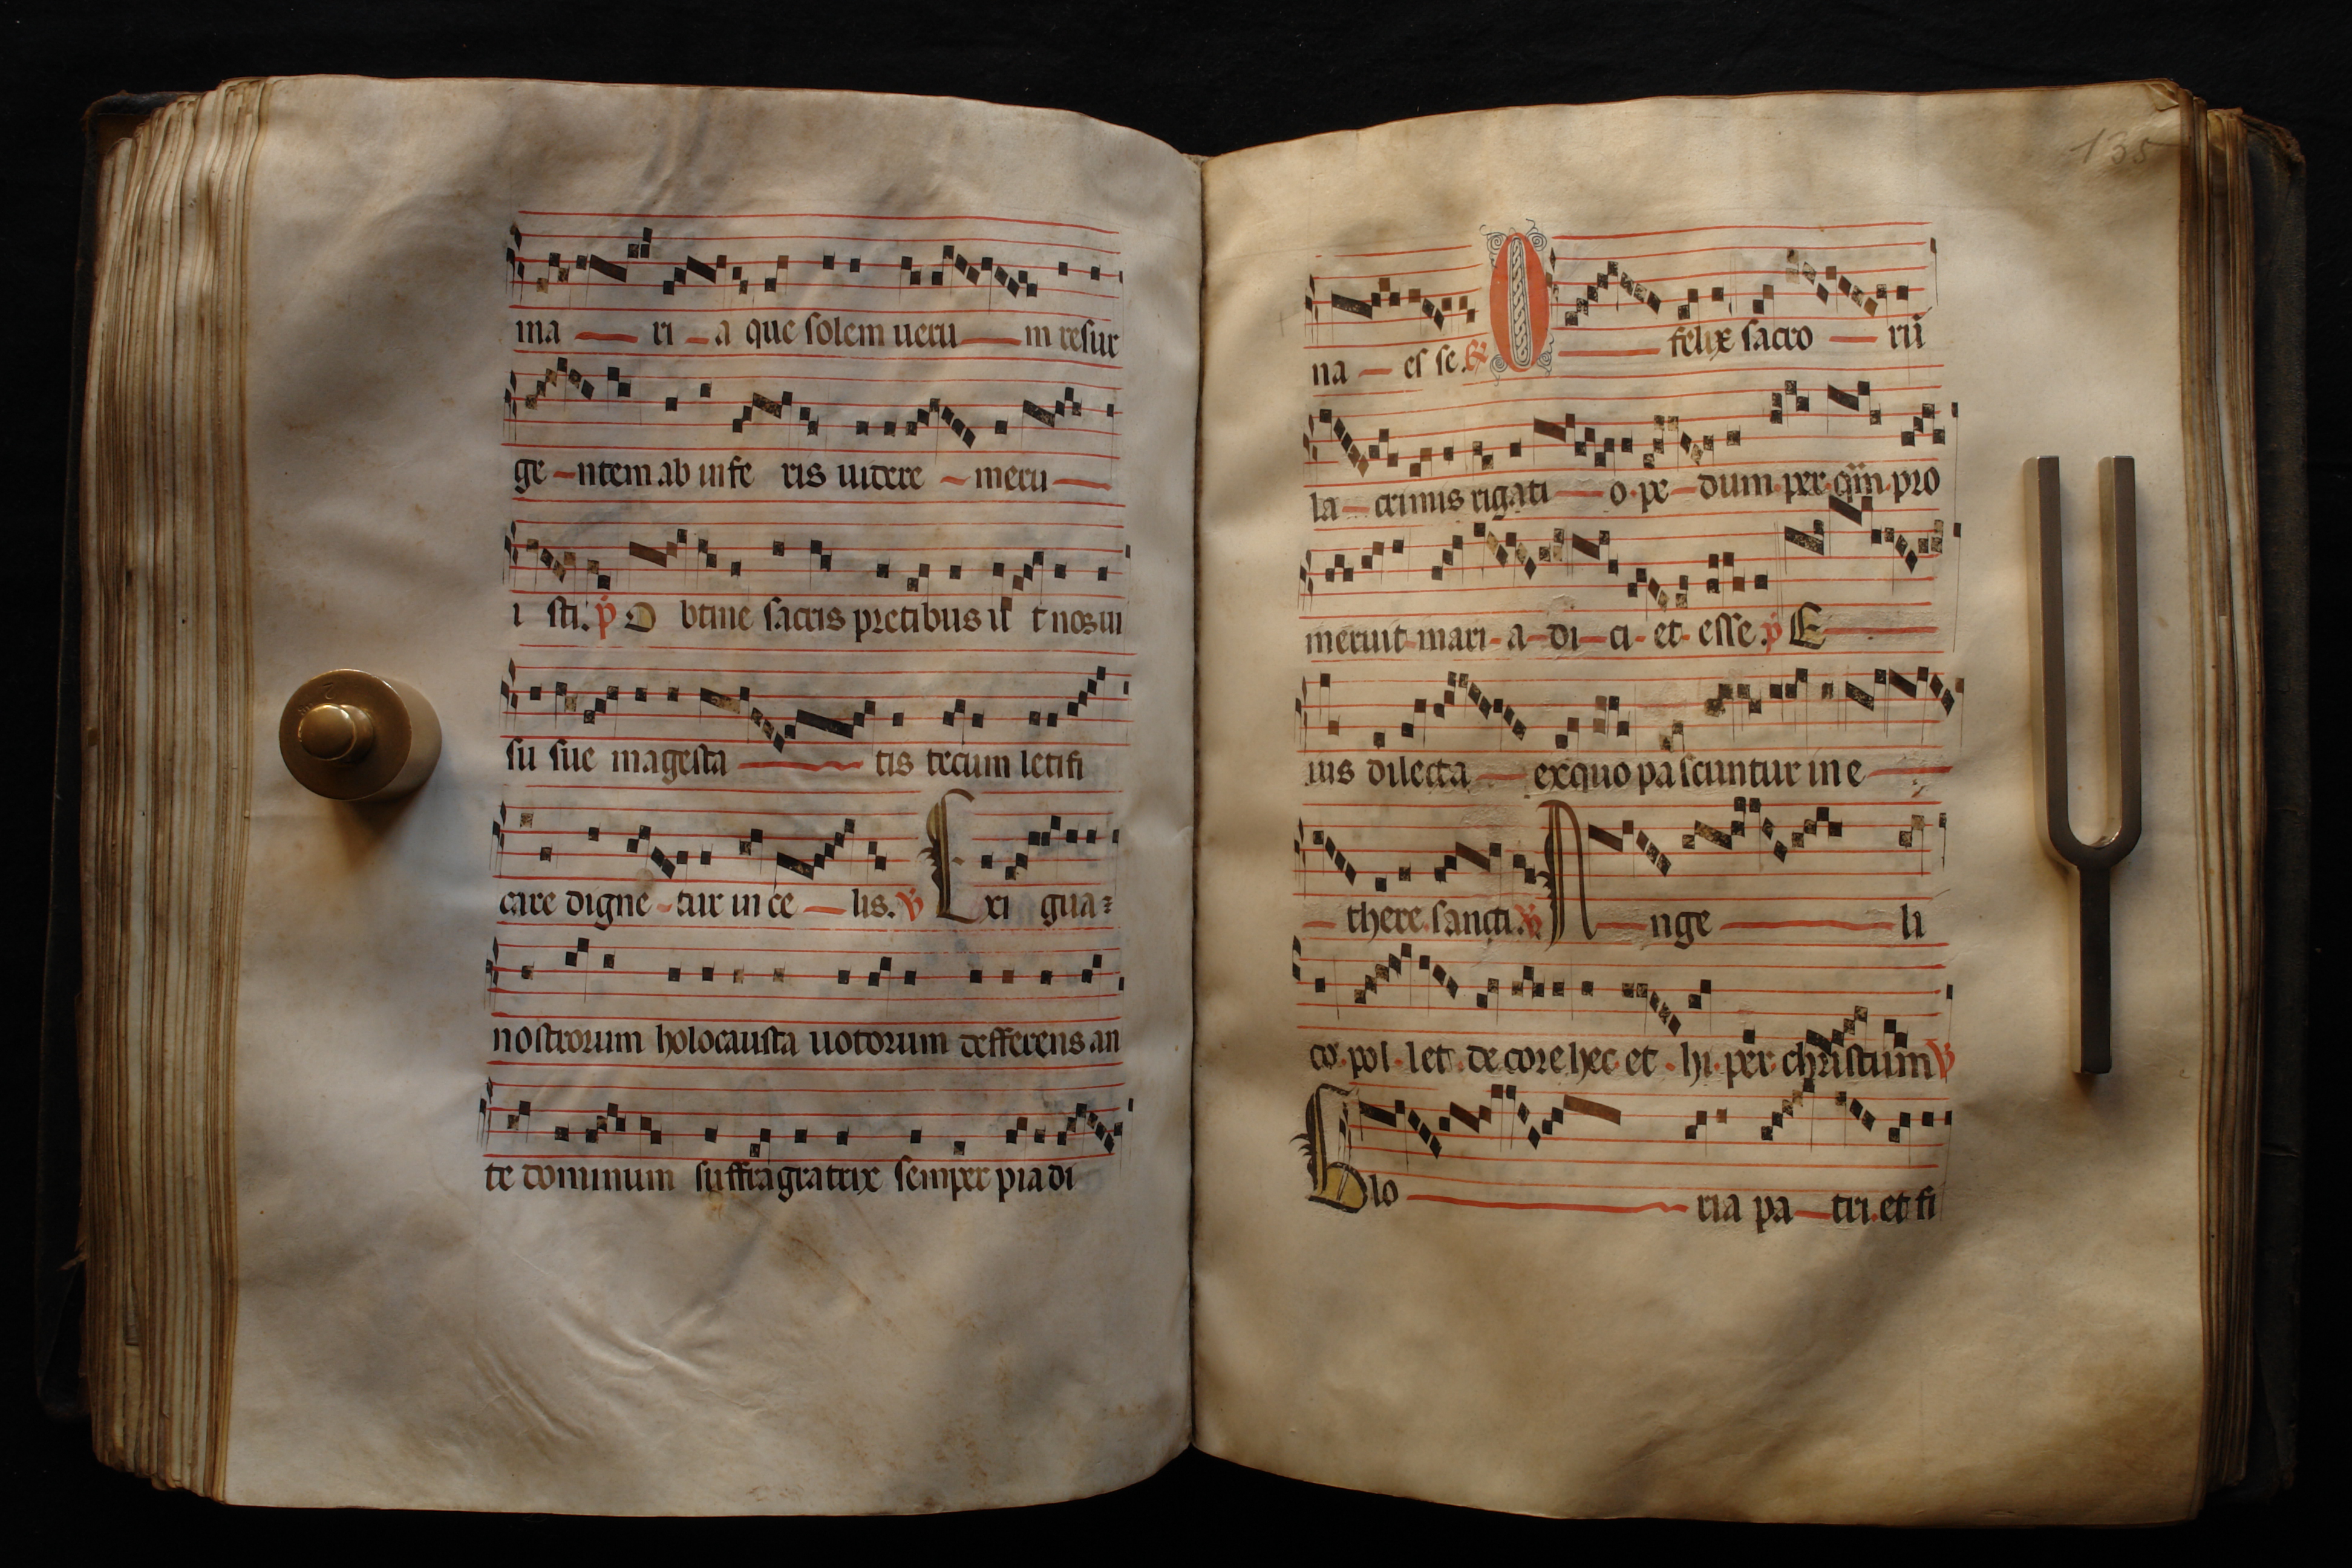 ma — ri — a que solem ueru — m resur
ge — ntem ab infe ris uidere — meru —
i sti. p O btine sacris precibus ut nos ui
su sue magesta — tis tecum letifi
care digne — tur in ce — lis. V Exi gua=
nostrorum holocausta uotorum defferens an
te dominum suffragratrix semper pia di
135
na — es se. R O — felix sacro — rū
la — crimis rigati — o pe — dum per pro
meruit mari — a di — ci et esse. p E —
ius dilecta — exquo pascuntur in e —
— there sancti. V A — nge — li
co pol let decore hec et hi per christum V
Glo — ria pa — tri et fi